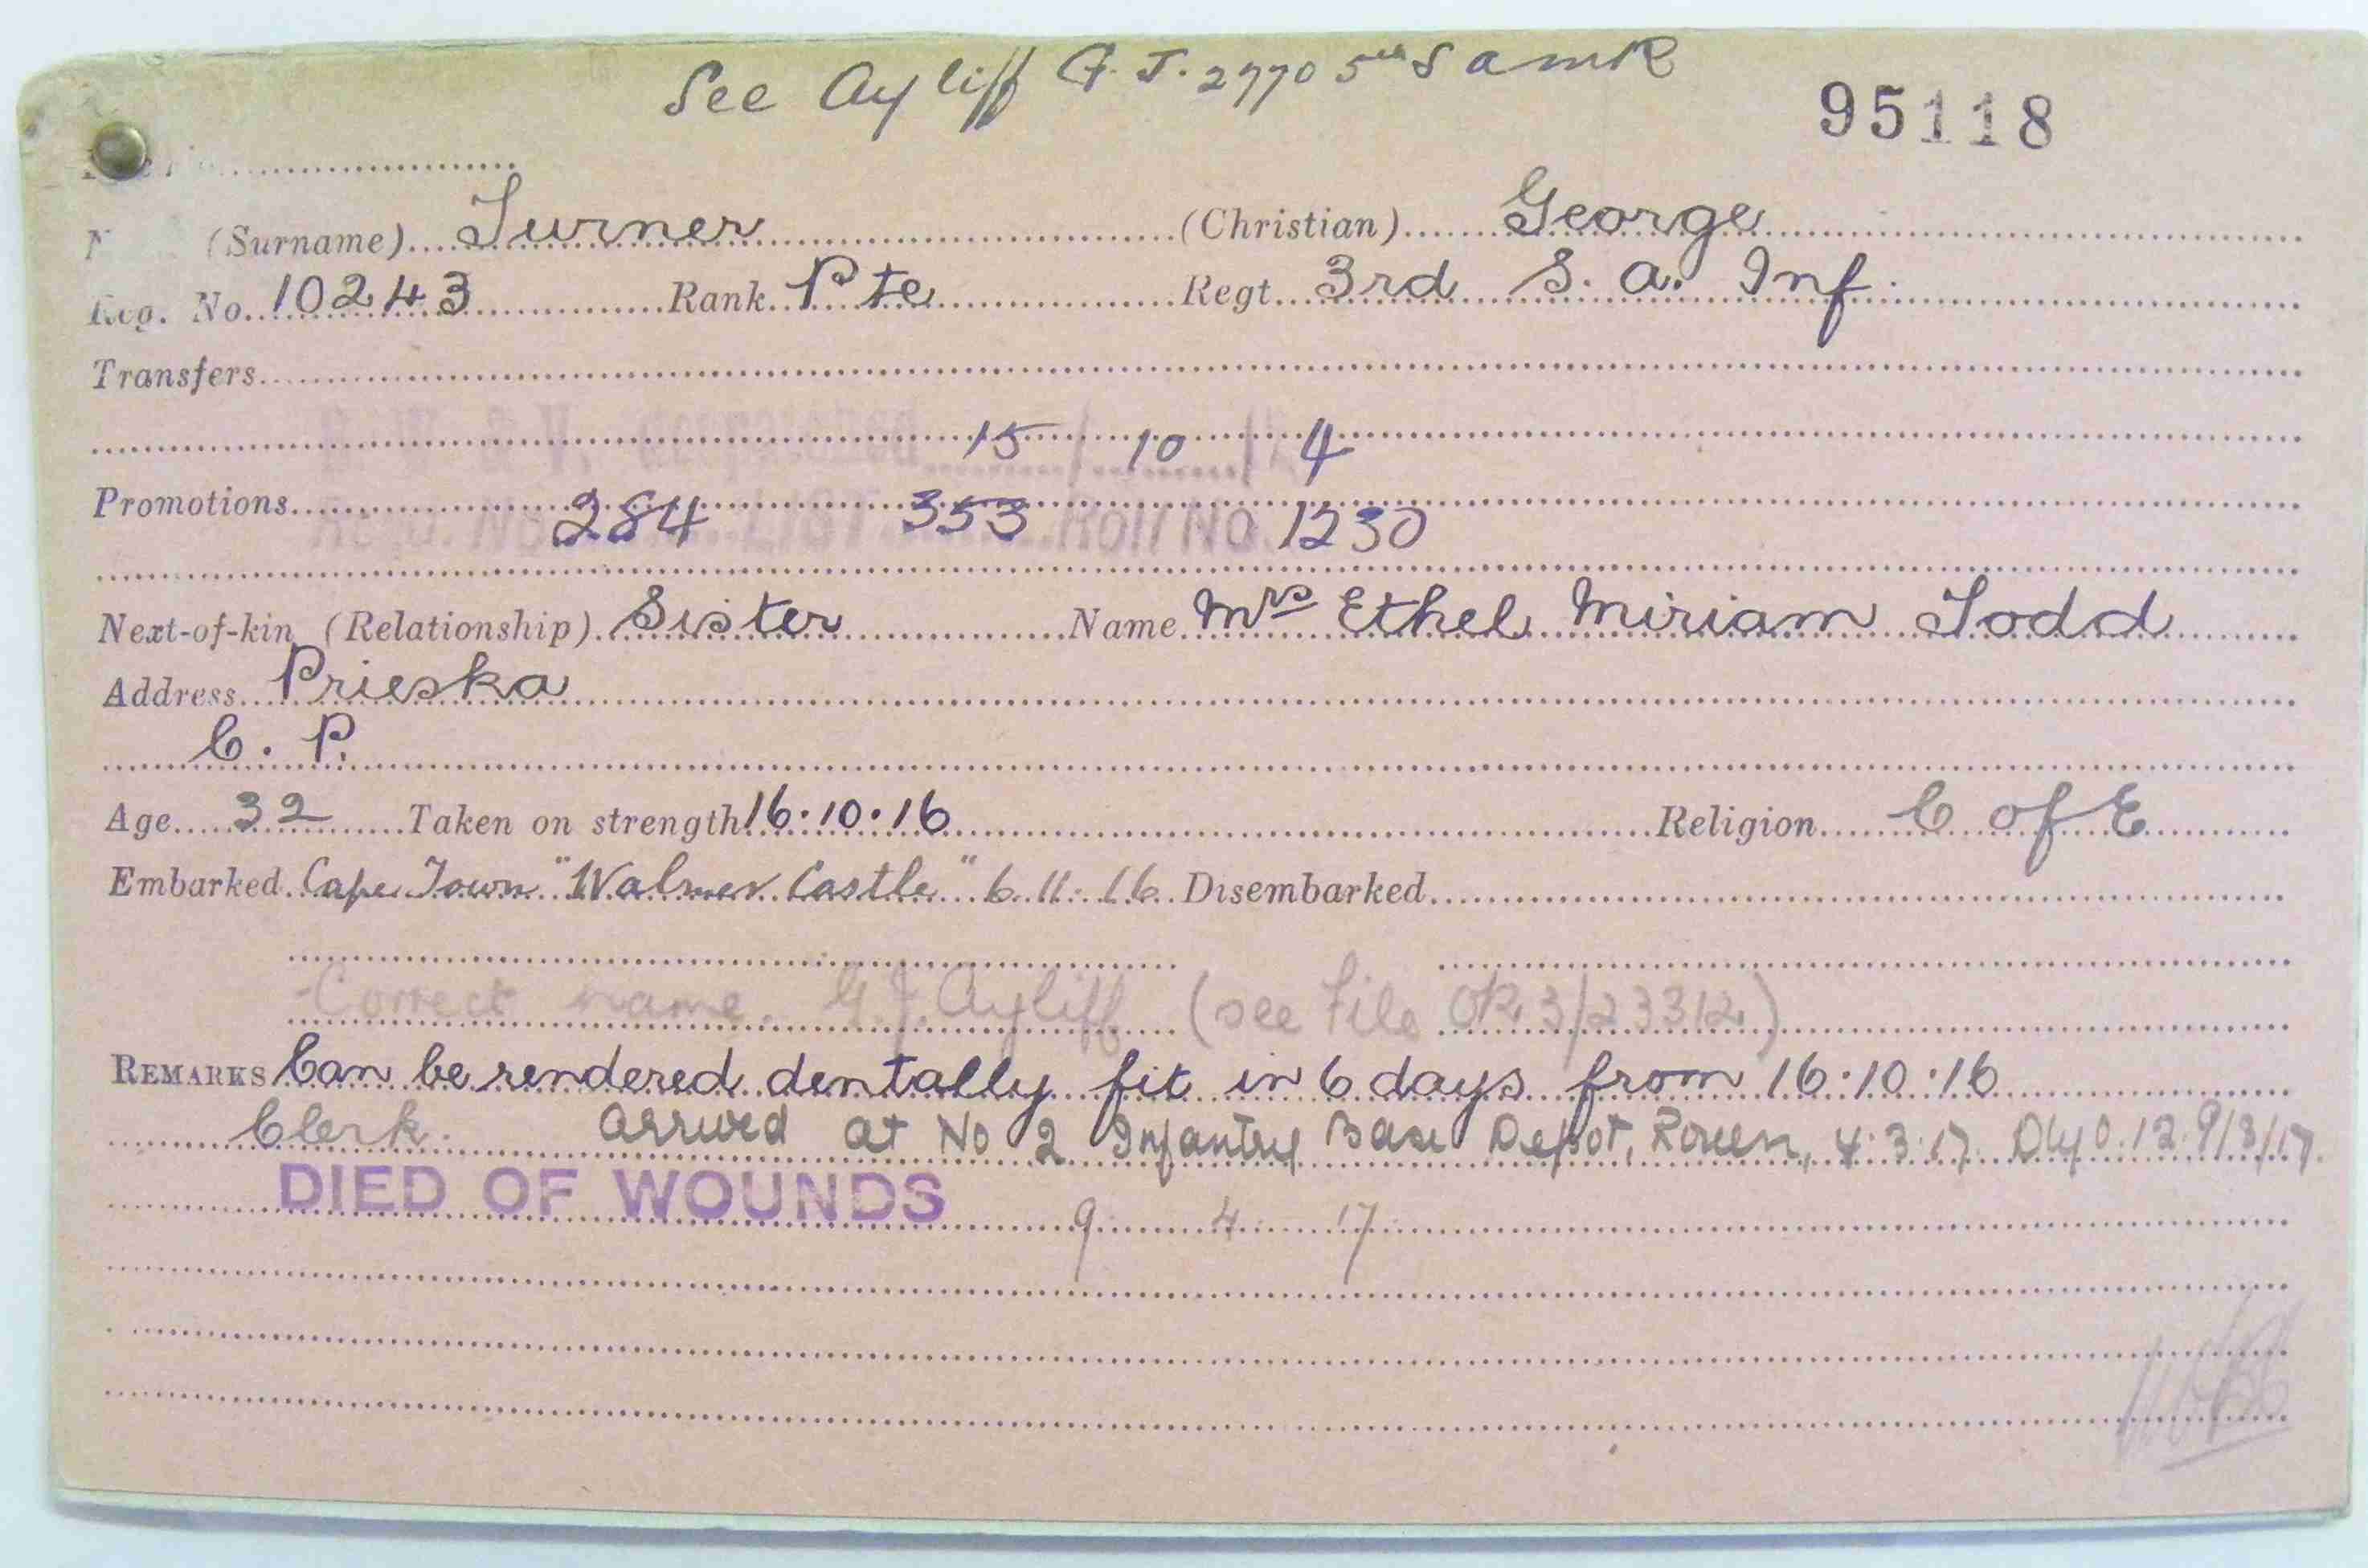 See Ayliff G. J. 2770 5th S A M R
95118
(Surname) Turner (Christian) George
Reg. No. 10243 Rank Pte Regt. 3rd S. A. Inf.
Transfers
15 / 10 / 4
Promotions
284 353 Roll No. 1230
Next-of-kin (Relationship) Sister Name Mrs Ethel Miriam Todd
Address Prieska
C. P.
Age 32 Taken on strength 16.10.16 Religion C of E
Embarked Cape Town "Walmer Castle" 6.11.16 Disembarked
Correct name. G.J. Ayliff (see File OR 3/23312)
REMARKS Can be rendered dentally fit in 6 days from 16.10.16
Clerk. Arrived at No 2 Infantry Base Depot, Rouen, 4.3.17. D/y O.12. 9/3/17.
DIED OF WOUNDS 9 4 17